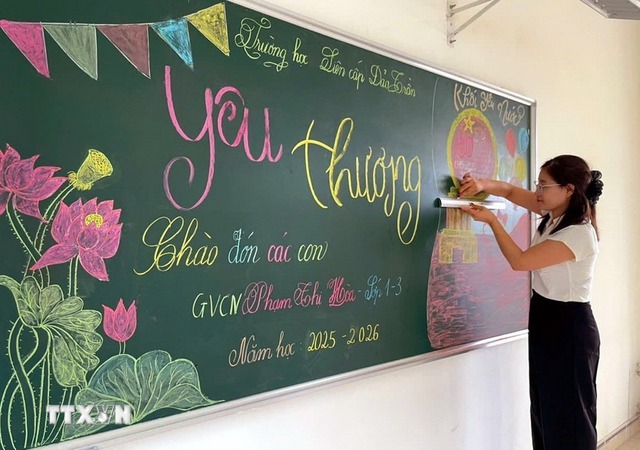 Trường học Liên cấp Dân Trần
Khối Yêu Nước
Yêu thương
Chào đón các con
GVCN Phạm Thị Hòa - Lớp 1-3
Năm học: 2025-2026
TTXVN